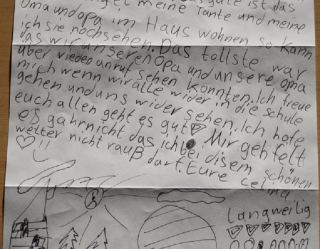 meine Tante und meine
Oma und opa im Haus wohnen so kann
ich sie noch sehen. Das tollste war
das wir unseren Opa und unsere Oma
über viedeo anruf sehen konnten. Ich freue
mich wenn wir alle wider in die schule
gehen und uns wider sehen. Ich hofe
euch allen geht es gut Mir gefelt
es gahrnicht das ich bei disem schönen
wetter nicht rauß darf. Eure
Langweilig